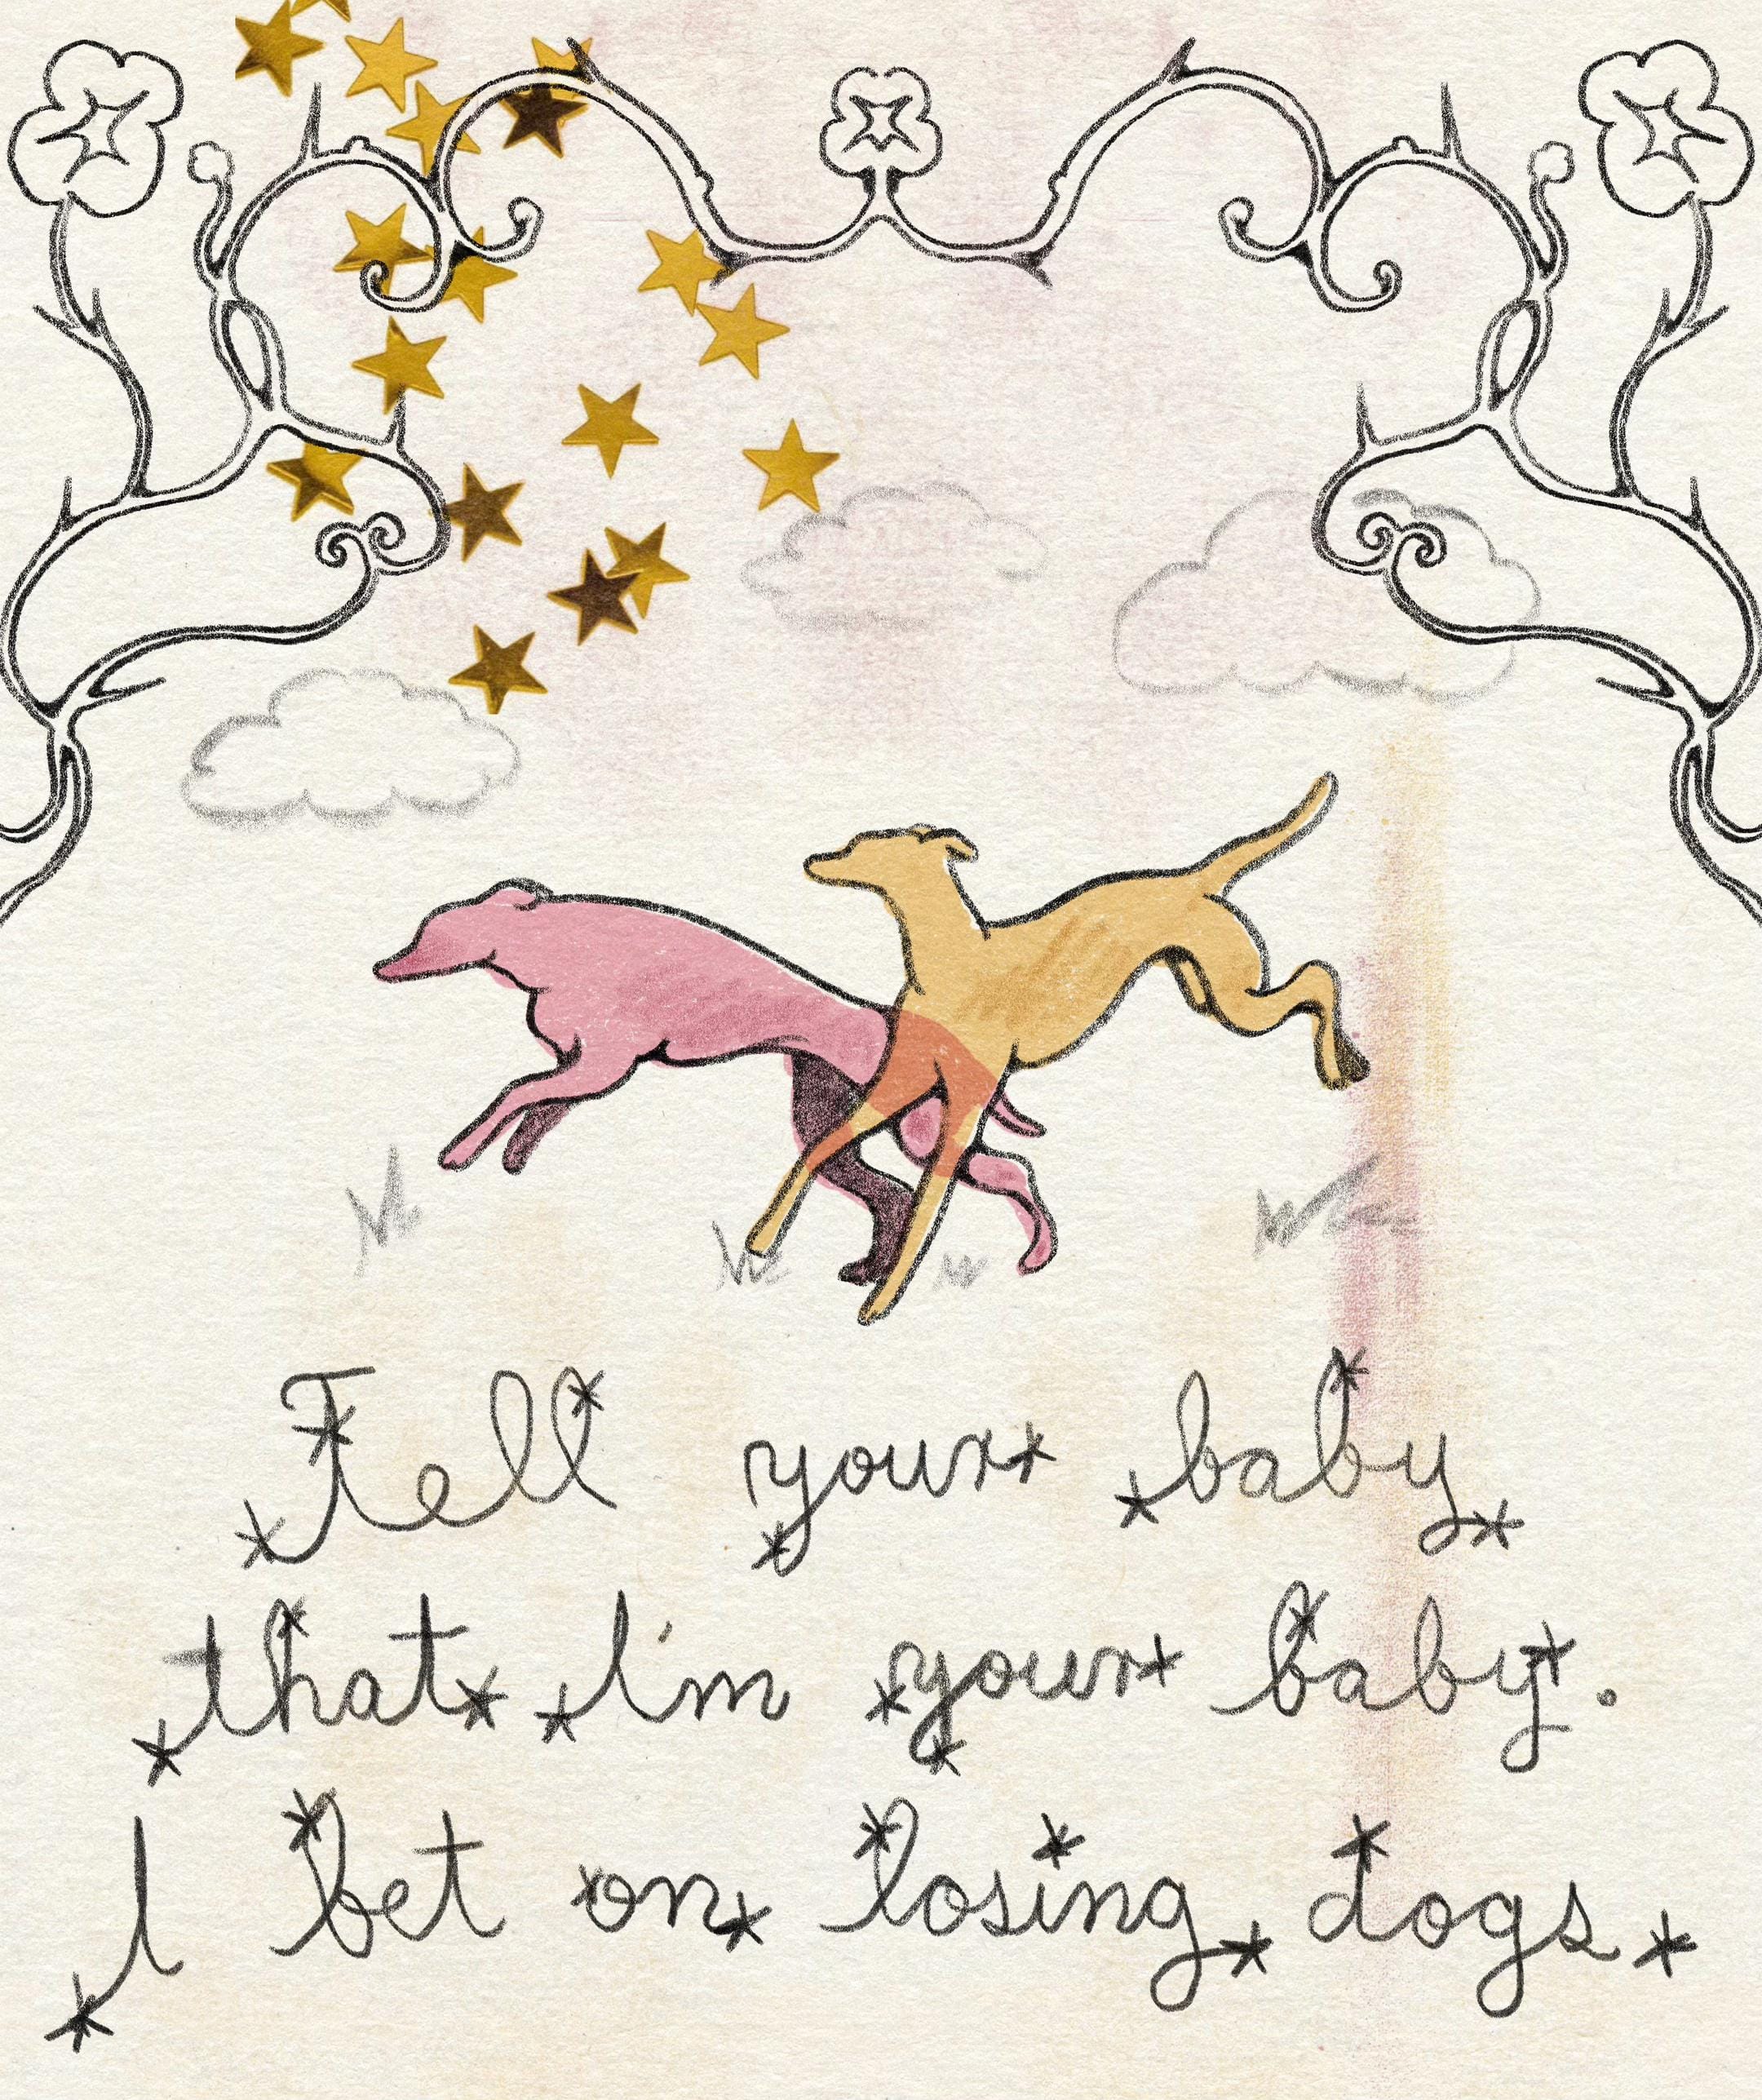 Tell your baby
that I'm your baby.
I bet on losing dogs